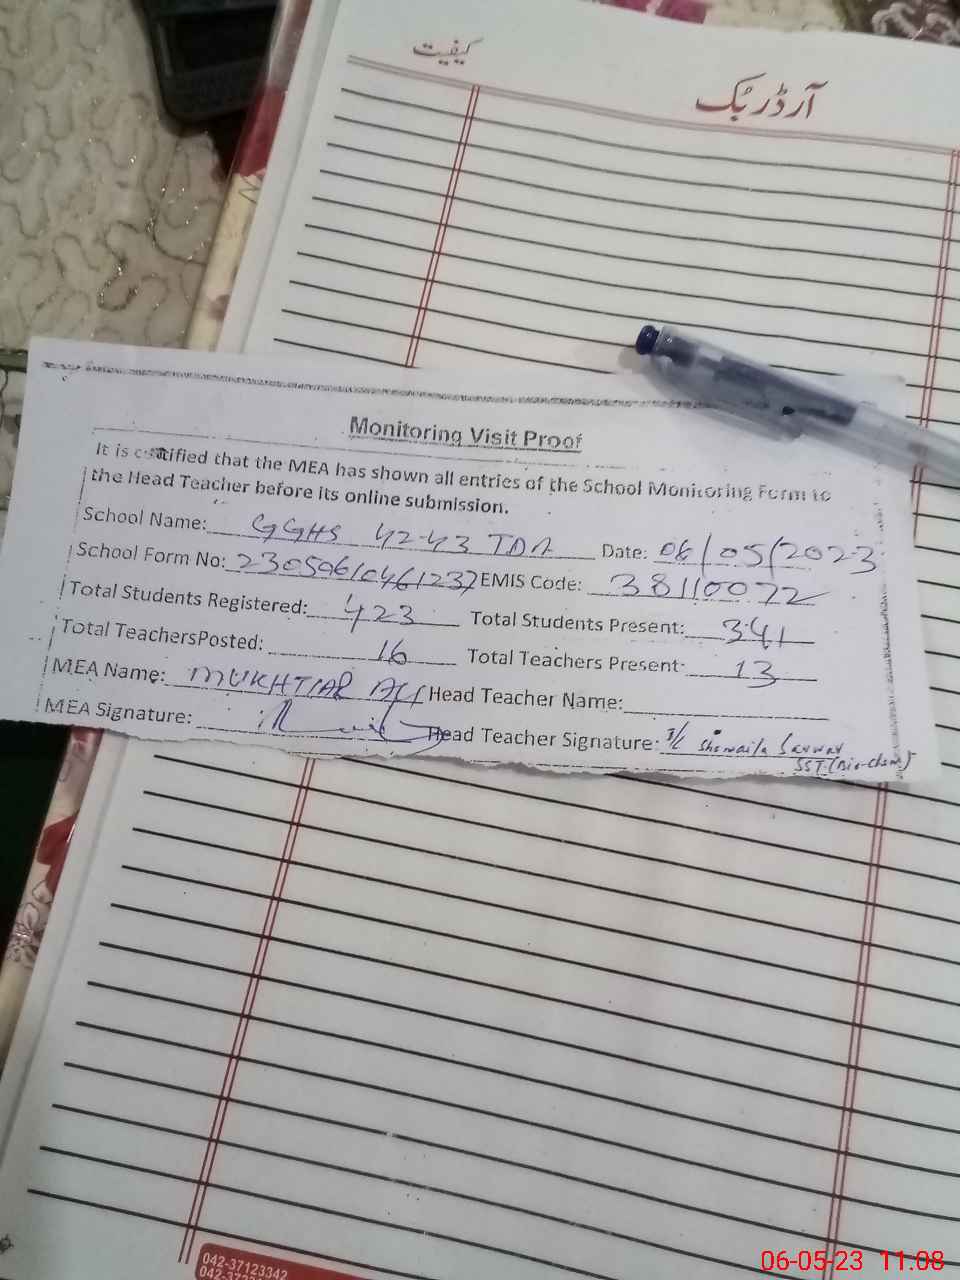 کیفیت
آرڈر بُک
Monitoring Visit Proof
It is certified that the MEA has shown all entries of the School Monitoring Form to
the Head Teacher before its online submission.
School Name: GGHS 42-43 TDA Date: 06/05/2023
School Form No: EMIS Code: 38110072
Total Students Registered: 423 Total Students Present: 341
Total TeachersPosted: 16 Total Teachers Present: 13
MEA Name: MUKHTIAR ALI Head Teacher Name:
MEA Signature: Head Teacher Signature: I/C Shomaila Sarwar
SST (Bio-chem)
042-37123342
06-05-23 11.08